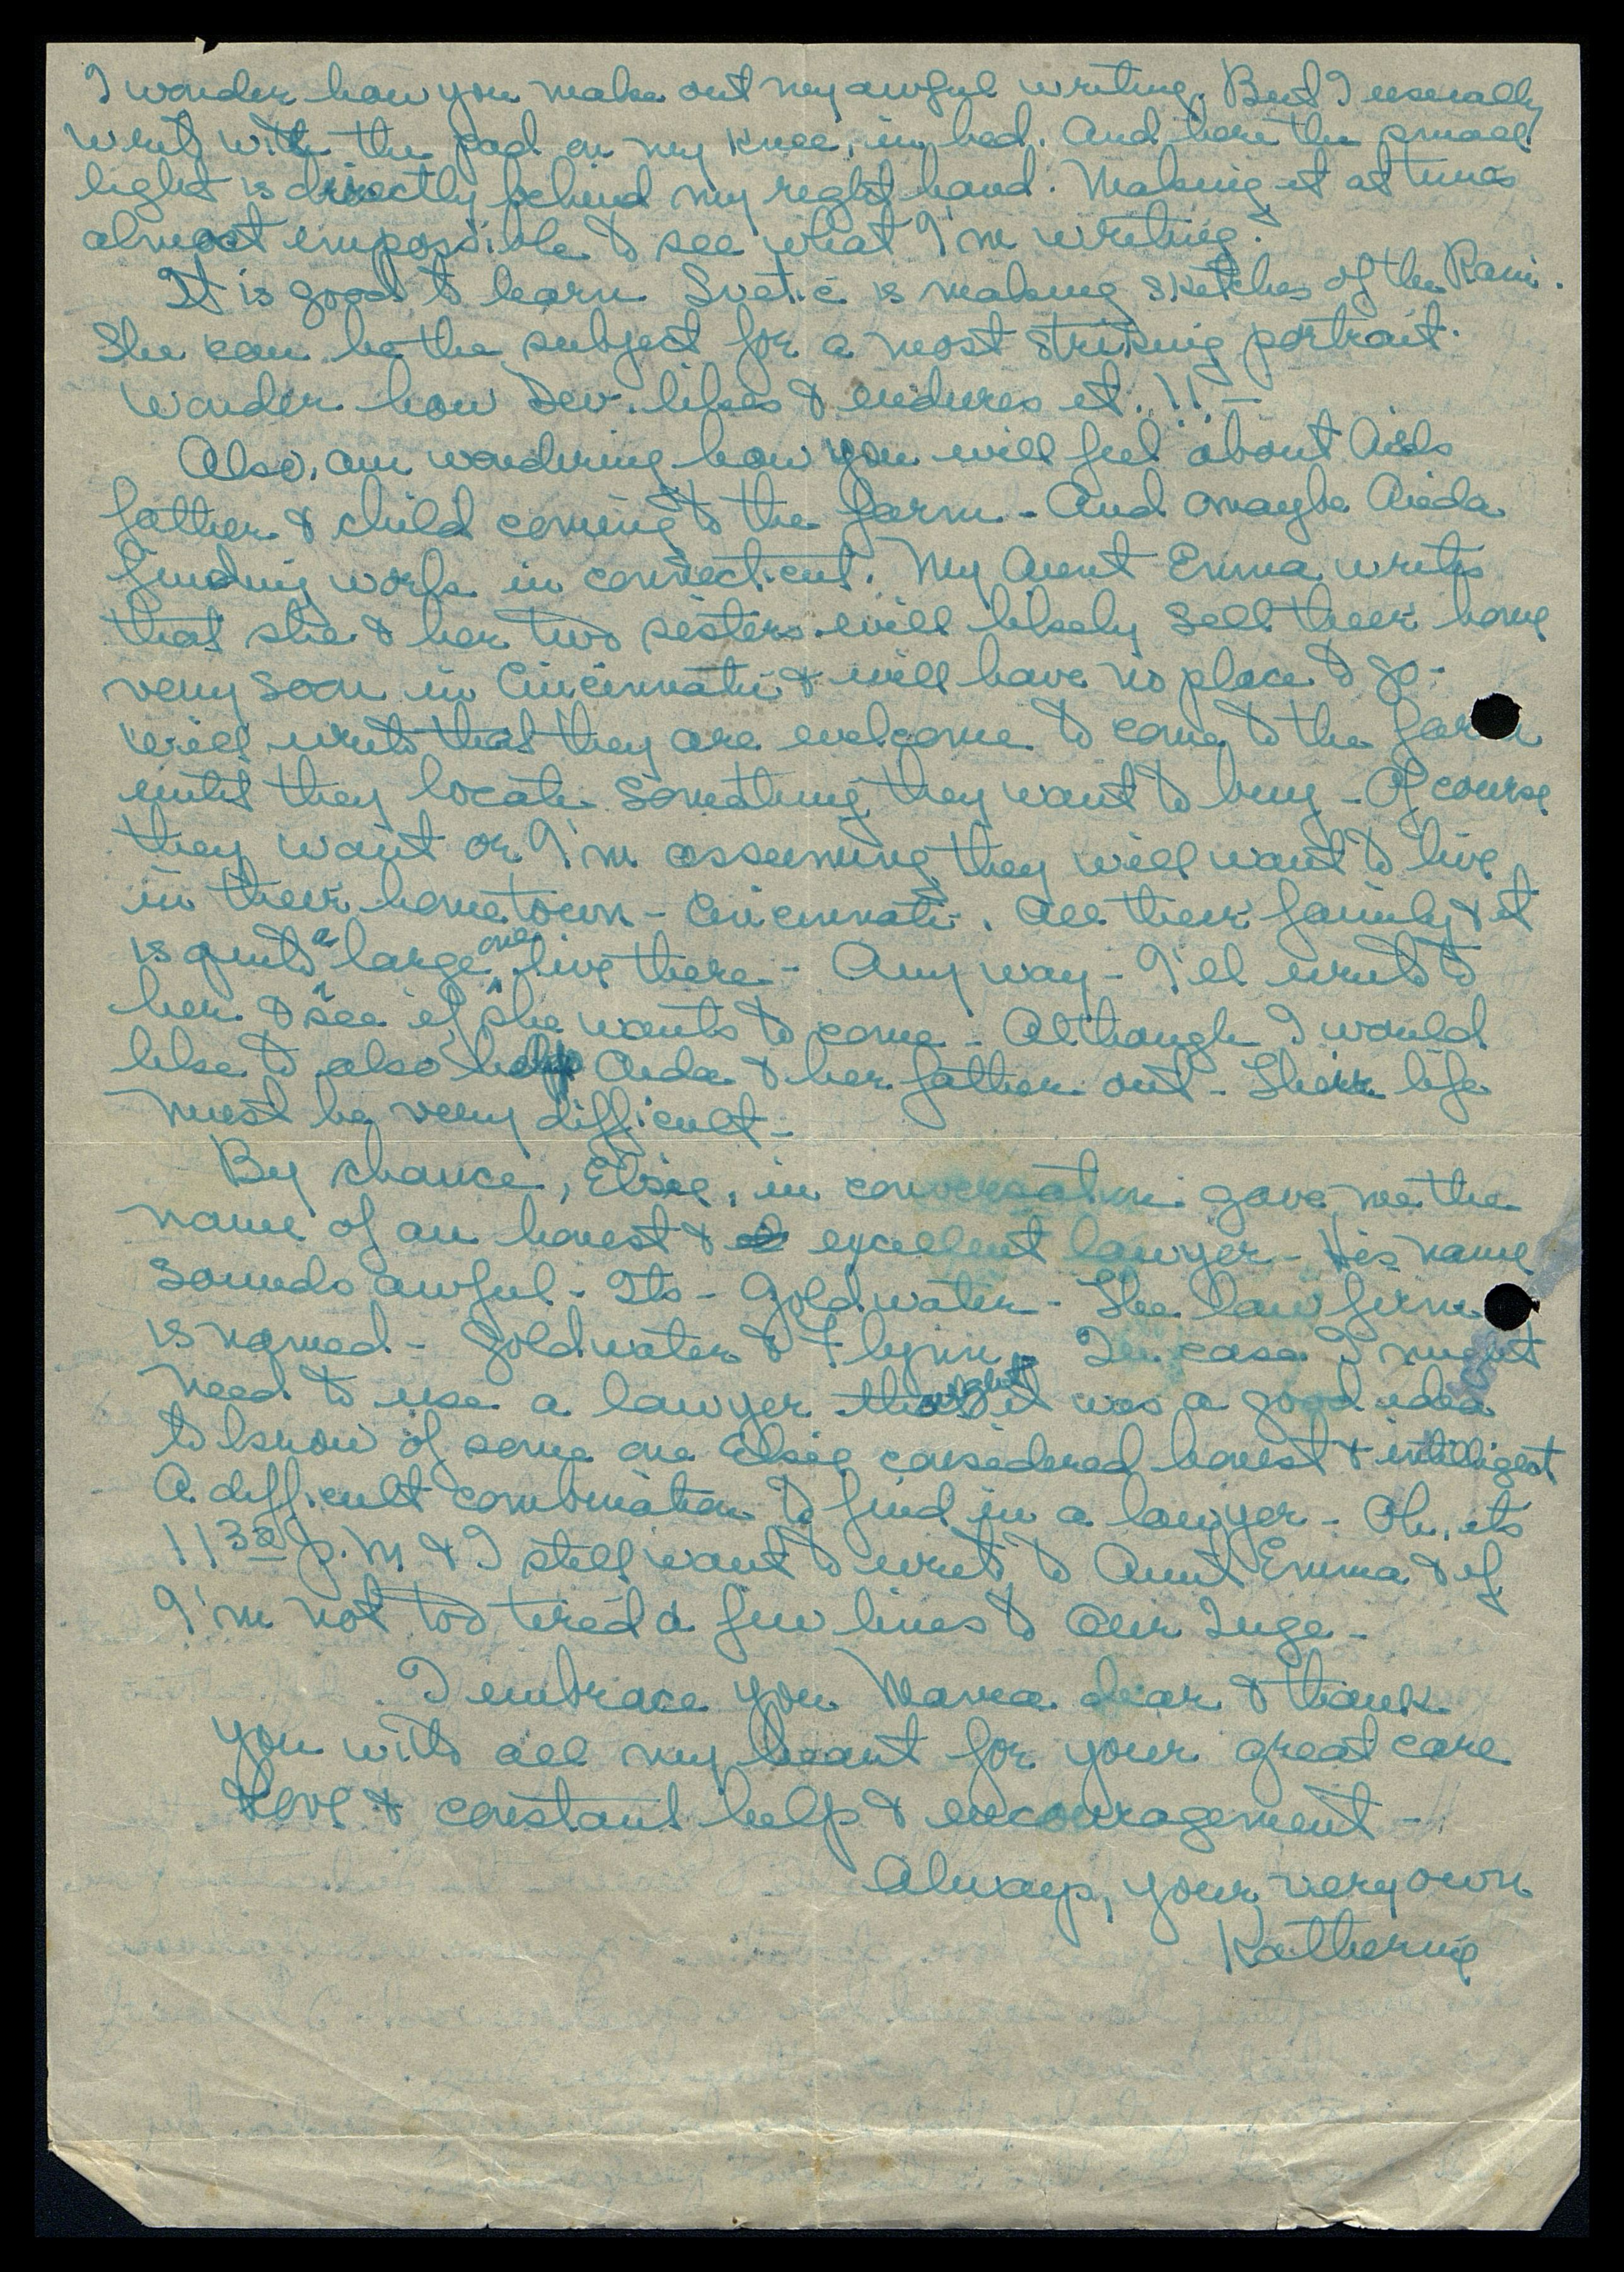 I wonder how you make out my awful writing. But I usually
write with the pad on my knee, in bed. And here the small
light is directly behind my right hand. Making it at times
almost impossible to see what I'm writing.
It is good to learn Svetić is making sketches of the Rani.
She can be the subject for a most striking portrait.
Wonder how Dev. likes & endures it..!!—
Also, am wondering how you will feel about Aida's
father & child coming to the farm - And maybe Aida
finding work in Connecticut. My Aunt Emma writes
that she & her two sisters will likely sell their home
very soon in Cincinnati & will have no place to go -
Will write that they are welcome to come to the farm
until they locate something they want to buy - Of course
they want or I'm assuming they will want to live
in their home town - Cincinnati. All their family & it
is quite a large one, live there - Any way - I'll write to
her & see if she wants to come - Although I would
like to also help Aida & her father out - Their life
must be very difficult -
By chance, Elsie, in conversation gave me the
name of an honest & excellent lawyer - His name
sounds awful - Its - Goldwater - The law firm
is named - Goldwater & Flynn. In case I might
need to use a lawyer thought it was a good idea
to know of some one Elsie considered honest & intelligent
A difficult combination to find in a lawyer - Oh, its
11 30 p.m & I still want to write to Aunt Emma & if
I'm not too tired a few lines to our Inge -
I embrace you Mavra dear & thank
you with all my heart for your great care
love & constant help & encouragement -
Always, your very own
Katherine